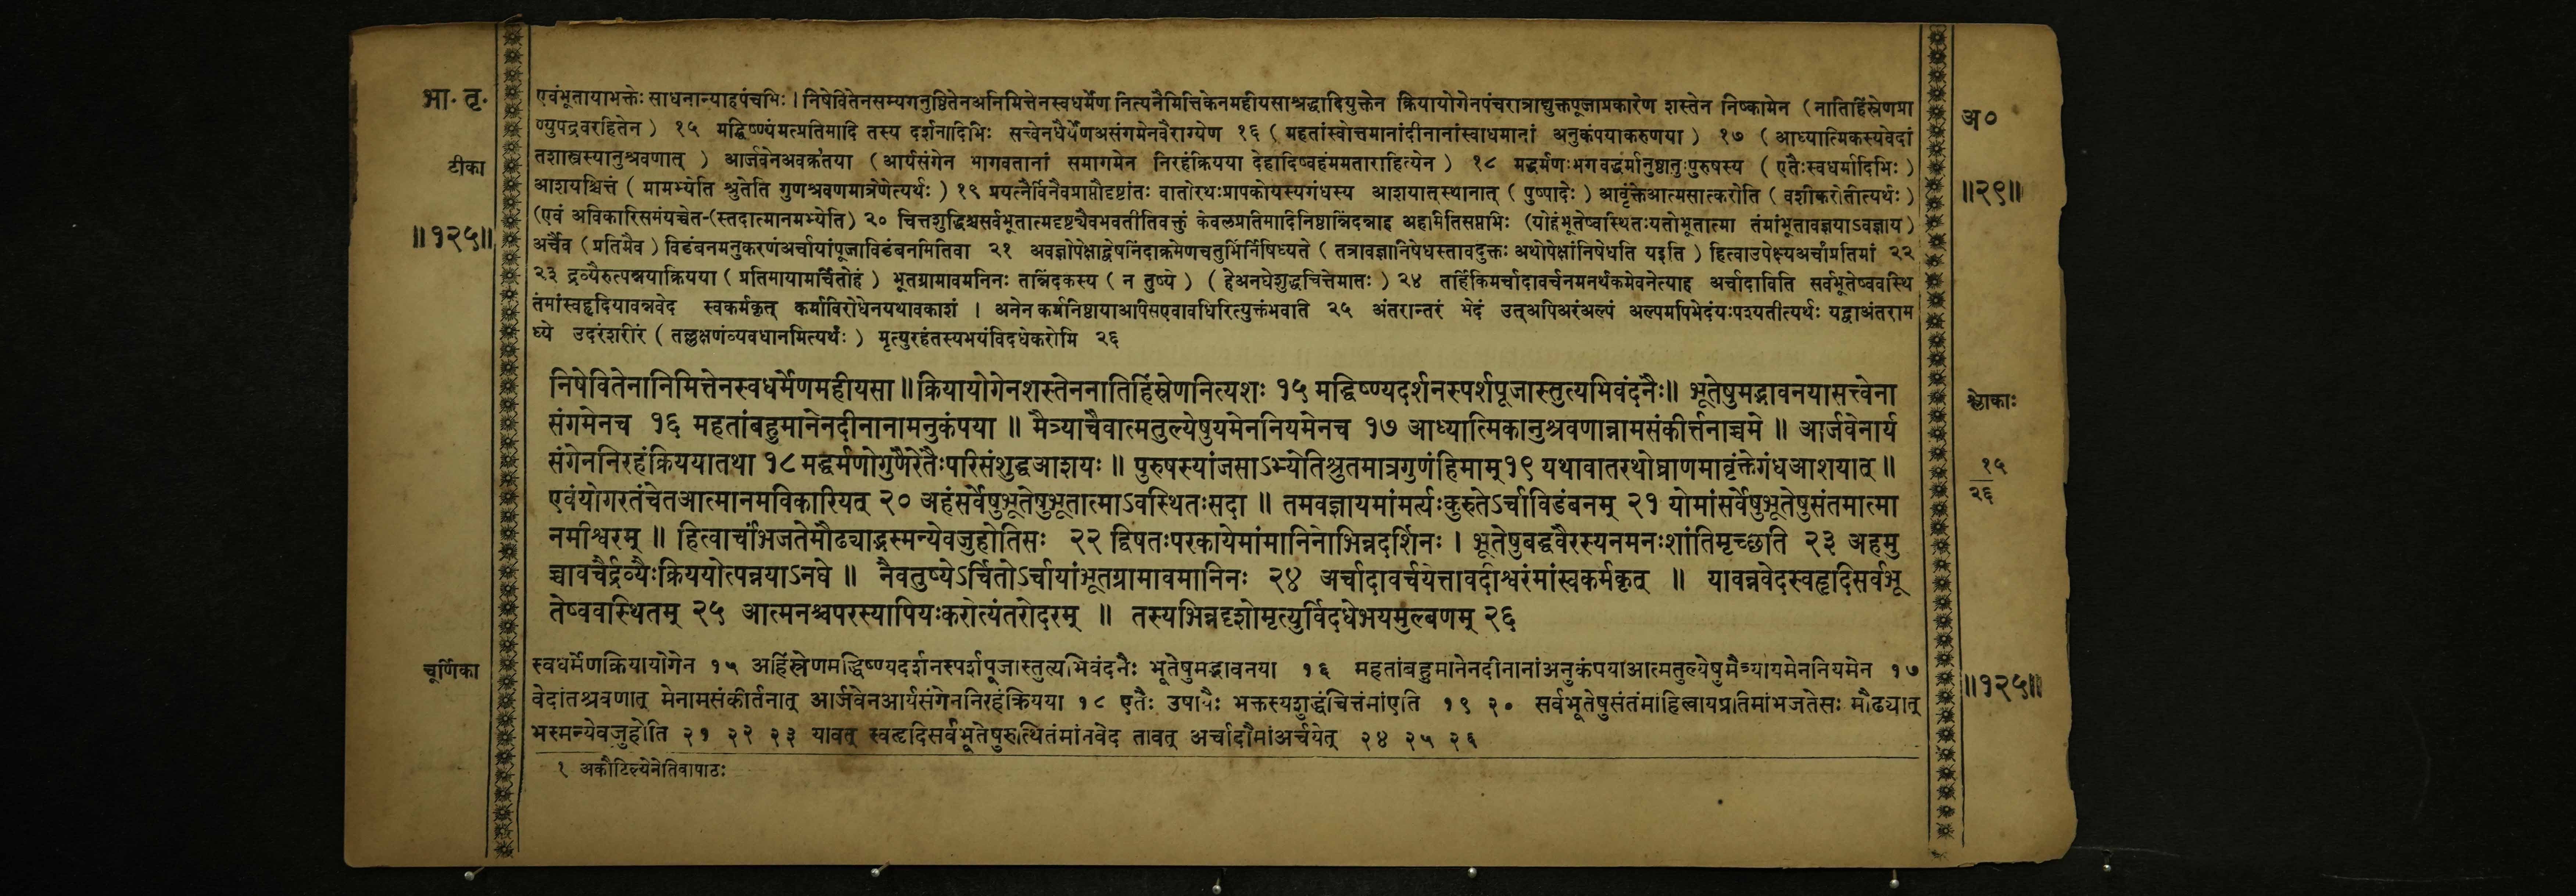 भा॰ तृ॰
टीका
॥१२५॥
एवंभूतायाभक्तेः साधनान्याहपंचभिः । निषेवितेनसम्यगनुष्ठितेनअनिमित्तेनस्वधर्मेण नित्यनैमित्तिकेनमहीयसाश्रद्धादियुक्तेन क्रियायोगेनपंचरात्राद्युक्तपूजाप्रकारेण शस्तेन निष्कामेन (नातिहिंस्रेणप्रा
ण्युपद्रवरहितेन) १५ मद्धिष्ण्यंमत्प्रतिमादि तस्य दर्शनादिभिः सत्त्वेनधैर्येणअसंगमेनवैराग्येण १६ (महतांस्वोत्तमानांदीनानांस्वाधमानां अनुकंपयाकरुणया) १७ (आध्यात्मिकस्यवेदां
तशास्त्रस्यानुश्रवणात्) आर्जवेनअवक्र१तया (आर्यसंगेन भागवतानां समागमेन निरहंक्रियया देहादिष्वहंममताराहित्येन) १८ मद्धर्मणःभगवद्धर्मानुष्ठातुःपुरुषस्य (एतैःस्वधर्मादिभिः)
आशयश्चित्तं (मामभ्येति श्रुतेति गुणश्रवणमात्रेणेत्यर्थः) १९ प्रयत्नैर्विनैवप्राप्तौदृष्टांतः वातोरथःप्रापकोयस्यगंधस्य आशयात्स्थानात् (पुष्पादेः) आवृंक्तेआत्मसात्करोति (वशीकरोतीत्यर्थः)
(एवं अविकारिसमंयच्चेत-(स्तदात्मानमभ्येति) २० चित्तशुद्धिश्चसर्वभूतात्मदृष्ट्यैवभवतीतिवक्तुं केवलप्रतिमादिनिष्ठान्निंदन्नाह अहमितिसप्तभिः (योहंभूतेष्ववस्थितःयतोभूतात्मा तंमांभूतावज्ञयाऽवज्ञाय)
अर्चैव (प्रतिमैव) विडंबनमनुकरणंअर्चायांपूजाविडंबनमितिवा २१ अवज्ञोपेक्षाद्वेषनिंदाक्रमेणचतुर्भिर्निषिध्यते (तत्रावज्ञानिषेधस्तावदुक्तः अथोपेक्षांनिषेधति यइति) हित्वाउपेक्ष्यअर्चांप्रतिमां २२
२३ द्रव्यैरुत्पन्नयाक्रियया (प्रतिमायामर्चितोहं) भूतग्रामावमानिनः तन्निंदकस्य (न तुष्ये) (हेअनघेशुद्धचित्तेमातः) २४ तर्हिकिमर्चादावर्चनमनर्थकमेवनेत्याह अर्चादाविति सर्वभूतेष्ववस्थि
तंमांस्वहृदियावन्नवेद स्वकर्मकृत् कर्माविरोधेनयथावकाशं । अनेन कर्मनिष्ठायाआपिसएवावधिरित्युक्तंभवति २५ अंतरान्तरं भेदं उत्अपिअरंअल्पं अल्पमपिभेदंयःपश्यतीत्यर्थः यद्वाअंतराम
ध्ये उदरंशरीरं (तल्लक्षणंव्यवधानमित्यर्थः) मृत्युरहंतस्यभयंविदधेकरोमि २६
निषेवितेनानिमित्तेनस्वधर्मेणमहीयसा ॥ क्रियायोगेनशस्तेननातिहिंस्रेणनित्यशः १५ मद्धिष्ण्यदर्शनस्पर्शपूजास्तुत्यभिवंदनैः॥ भूतेषुमद्भावनयासत्त्वेना
संगमेनच १६ महतांबहुमानेनदीनानामनुकंपया ॥ मैत्र्याचैवात्मतुल्येषुयमेननियमेनच १७ आध्यात्मिकानुश्रवणान्नामसंकीर्त्तनाच्चमे ॥ आर्जवेनार्य
संगेननिरहंक्रिययातथा १८ मद्धर्मणोगुणैरेतैःपरिसंशुद्धआशयः ॥ पुरुषस्यांजसाऽभ्येतिश्रुतमात्रगुणंहिमाम्१९ यथावातरथोघ्राणमावृंक्तेगंधआशयात् ॥
एवंयोगरतंचेतआत्मानमविकारियत् २० अहंसर्वेषुभूतेषुभूतात्माऽवस्थितःसदा ॥ तमवज्ञायमांमर्त्यःकुरुतेऽर्चाविडंबनम् २१ योमांसर्वेषुभूतेषुसंतमात्मा
नमीश्वरम् ॥ हित्वार्चांभजतेमौढ्याद्भस्मन्येवजुहोतिसः २२ द्विषतःपरकायेमांमानिनोभिन्नदर्शिनः । भूतेषुबद्धवैरस्यनमनःशांतिमृच्छति २३ अहमु
च्चावचैर्द्रव्यैःक्रिययोत्पन्नयाऽनघे ॥ नैवतुष्येऽर्चितोऽर्चायांभूतग्रामावमानिनः २४ अर्चादावर्चयेत्तावदीश्वरंमांस्वकर्मकृत् ॥ यावन्नवेदस्वहृदिसर्वभू
तेष्ववस्थितम् २५ आत्मनश्चपरस्यापियःकरोत्यंतरोदरम् ॥ तस्यभिन्नदृशोमृत्युर्विदधेभयमुल्बणम् २६
चूर्णिका
स्वधर्मेणक्रियायोगेन १५ अहिंस्रेणमद्धिष्ण्यदर्शनस्पर्शपूजास्तुत्यभिवंदनैः भूतेषुमद्भावनया १६ महतांबहुमानेनदीनानांअनुकंपयाआत्मतुल्येषुमैत्र्यायमेननियमेन १७
वेदांतश्रवणात् मेनामसंकीर्तनात् आर्जवेनआर्यसंगेननिरहंक्रियया १८ एतैः उपायैः भक्तस्यशुद्धंचित्तंमांएति १९ २० सर्वभूतेषुसंतंमांहित्वायप्रतिमांभजतेसः मौढ्यात्
भस्मन्येवजुहोति २१ २२ २३ यावत् स्वहृदिसर्वभूतेषुस्थितंमांनवेद तावत् अर्चादौमांअर्चयेत् २४ २५ २६
१ अकौटिल्येनेतिवापाठः
अ०
॥२९॥
श्लोकाः
१५
२६
॥१२५॥